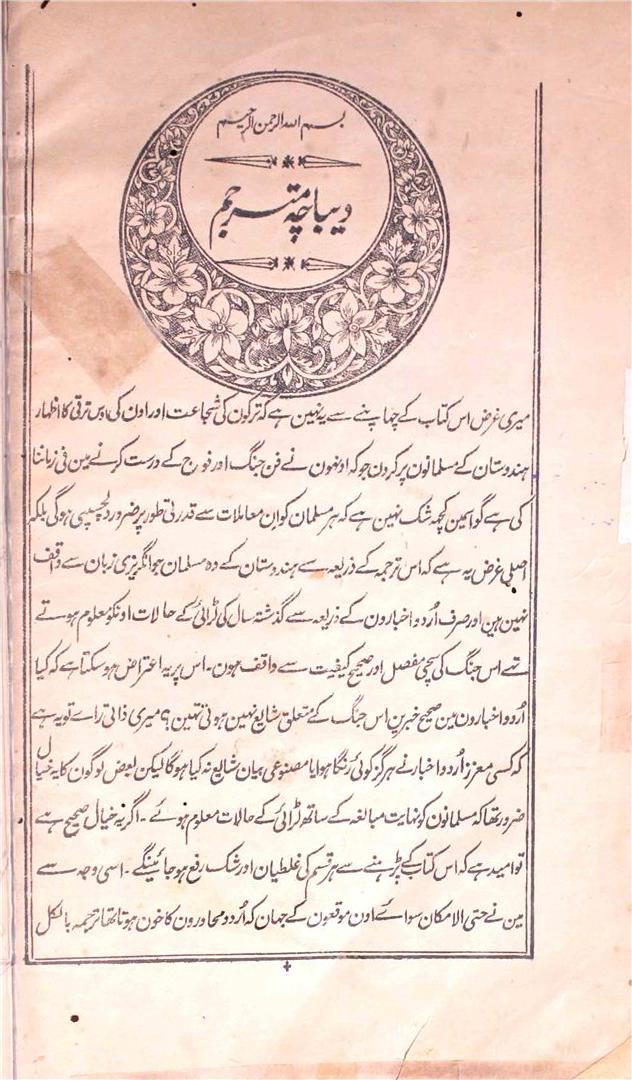 بسم الله الرحمن الرحیم
دیباچہ مترجم
میری غرض اس کتاب کے چھاپنے سے یہ نہین ہے کہ ترکون کی شجاعت اور اون کی اوس ترقی کا اظہار
ہندوستان کے مسلمانون پر کرون جو کہ اونہون نے فن جنگ اور فوج کے درست کرنے مین فی زماننا
کی ہے گو اسمین کچھ شک نہین ہے کہ ہر مسلمان کو ان معاملات سے قدرتی طور پر ضرور دلچسپی ہوگی بلکہ
اصلی غرض یہ ہے کہ اس ترجمہ کے ذریعہ سے ہندوستان کے وہ مسلمان جو انگریزی زبان سے واقف
نہین ہین اور صرف اُردو اخبارون کے ذریعہ سے گذشتہ سال کی لڑائی کے حالات اونکو معلوم ہوتے
تھے اس جنگ کی سچی مفصل اور صحیح کیفیت سے واقف ہون۔ اس پر یہ اعتراض ہو سکتا ہے کہ کیا
اُردو اخبارون مین صحیح خبرین اس جنگ کے متعلق شایع نہین ہوتی تہین؟ میری ذاتی راے تو یہ ہے
کہ کسی معزز اُردو اخبار نے ہرگز کوئی رنگا ہوا یا مصنوعی بیان شایع نہ کیا ہوگا لیکن بعض لوگون کا یہ خیال
ضرور تھا کہ مسلمانون کو نہایت مبالغہ کے ساتھ لڑائی کے حالات معلوم ہوئے۔ اگر یہ خیال صحیح ہے
تو امید ہے کہ اس کتاب کے پڑہنے سے ہر قسم کی غلطیان اور شک رفع ہو جائینگے۔ اسی وجہ سے
مین نے حتی الامکان سواے اون موقعون کے جہان کہ اُردو محاورون کا خون ہوتا تھا ترجمہ بالکل